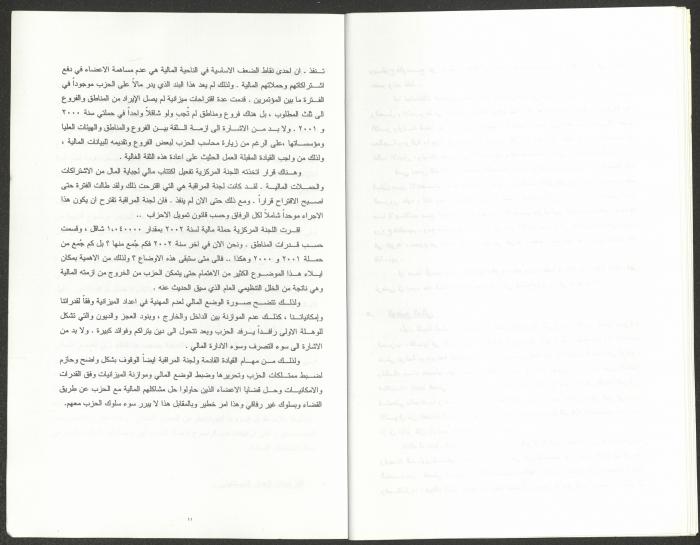 تنفذ . ان احدى نقاط الضعف الاساسية في الناحية المالية هي عدم مساهمة الاعضاء في دفع
اشتراكاتهم وحملاتهم المالية . ولذلك لم يعد هذا البند الذي يدر مالاً على الحزب موجوداً في
الفترة ما بين المؤتمرين . قدمت عدة اقتراحات ميزانية لم يصل الإيراد من المناطق والفروع
الى ثلث المطلوب ، بل هناك فروع ومناطق لم تُجبِ ولو شاقلاً واحداً في حملتي سنة ٢٠٠٠
و ٢٠٠١ . ولا بد من الاشارة الى ازمة الثقة بين الفروع والمناطق والهيئات العليا
ومؤسساتها ،على الرغم من زيارة محاسب الحزب لبعض الفروع وتقديمه للبيانات المالية ،
ولذلك من واجب القيادة المقبلة العمل الحثيث على اعادة هذه الثقة الغالية .
وهناك قرار اتخذته اللجنة المركزية تفعيل اكتتاب مالي لجباية المال من الاشتراكات
والحملات المالية . لقد كانت لجنة المراقبة هي التي اقترحت ذلك ولقد طالت الفترة حتى
اصبح الاقتراح قراراً . ومع ذلك حتى الان لم ينفذ . فان لجنة المراقبة تقترح ان يكون هذا
الاجراء موحداً شاملاً لكل الرفاق وحسب قانون تمويل الاحزاب ..
اقرت اللجنة المركزية حملة مالية لسنة ٢٠٠٢ بمقدار ١،٠٤٠٠٠٠ شاقل ، وقسمت
حسب قدرات المناطق . ونحن الان في اخر سنة ٢٠٠٢ فكم جُمع منها ؟ بل كم جُمع من
حملة ٢٠٠١ و ٢٠٠٠ وهكذا .. فالى متى ستبقى هذه الاوضاع ؟ ولذلك من الاهمية بمكان
ايلاء هذا الموضوع الكثير من الاهتمام حتى يتمكن الحزب من الخروج من ازمته المالية
وهي ناتجة من الخلل التنظيمي العام الذي سبق الحديث عنه .
ولذلك تتضح صورة الوضع المالي لعدم المهنية في اعداد الميزانية وفقاً لقدراتنا
وإمكانياتنا ، كذلك عدم الموازنة بين الداخل والخارج ، وبنود العجز والديون والتي تشكل
للوهلة الاولى رافداً يرفد الحزب وبعد تتحول الى دين يتراكم وفوائد كبيرة . ولا بد من
الاشارة الى سوء التصرف وسوء الادارة المالي .
ولذلك من مهام القيادة القادمة ولجنة المراقبة ايضاً الوقوف بشكل واضح وحازم
لضبط ممتلكات الحزب وتحريرها وضبط الوضع المالي وموازنة الميزانيات وفق القدرات
والامكانيات وحل قضايا الاعضاء الذين حاولوا حل مشاكلهم المالية مع الحزب عن طريق
القضاء وبسلوك غير رفاقي وهذا امر خطير وبالمقابل هذا لا يبرر سوء سلوك الحزب معهم.
١١